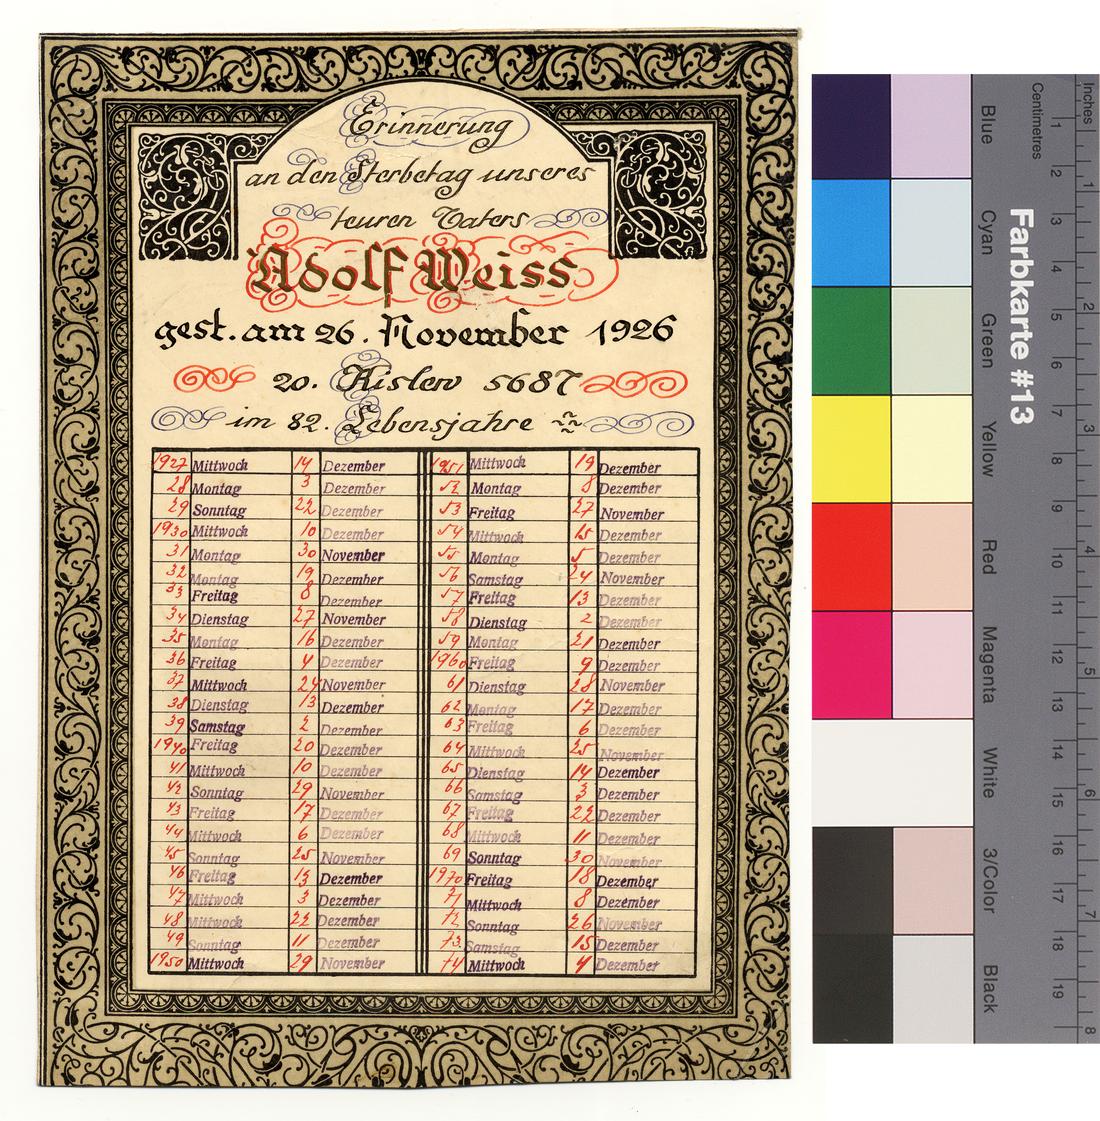 Erinnerung
an den Sterbetag unseres
teuren Vaters
Adolf Weiss
gest. am 26. November 1926
20. Kislew 5687
im 82. Lebensjahre
1927 Mittwoch 14 Dezember 1951 Mittwoch 19 Dezember
28 Montag 3 Dezember 52 Montag 8 Dezember
29 Sonntag 22 Dezember 53 Freitag 27 November
1930 Mittwoch 10 Dezember 54 Mittwoch 15 Dezember
31 Montag 30 November 55 Montag 5 Dezember
32 Montag 19 Dezember 56 Samstag 24 November
33 Freitag 8 Dezember 57 Freitag 13 Dezember
34 Dienstag 27 November 58 Dienstag 2 Dezember
35 Montag 16 Dezember 59 Montag 21 Dezember
36 Freitag 4 Dezember 1960 Freitag 9 Dezember
37 Mittwoch 24 November 61 Dienstag 28 November
38 Dienstag 13 Dezember 62 Montag 17 Dezember
39 Samstag 2 Dezember 63 Freitag 6 Dezember
1940 Freitag 20 Dezember 64 Mittwoch 25 November
41 Mittwoch 10 Dezember 65 Dienstag 14 Dezember
42 Sonntag 29 November 66 Samstag 3 Dezember
43 Freitag 17 Dezember 67 Freitag 22 Dezember
44 Mittwoch 6 Dezember 68 Mittwoch 11 Dezember
45 Sonntag 25 November 69 Sonntag 30 November
46 Freitag 13 Dezember 1970 Freitag 18 Dezember
47 Mittwoch 3 Dezember 71 Mittwoch 8 Dezember
48 Mittwoch 22 Dezember 72 Sonntag 26 November
49 Sonntag 11 Dezember 73 Samstag 15 Dezember
1950 Mittwoch 29 November 74 Mittwoch 4 Dezember
Farbkarte #13
Blue
Cyan
Green
Yellow
Red
Magenta
White
3/Color
Black
Centimetres
1 2 3 4 5 6 7 8 9 10 11 12 13 14 15 16 17 18 19
Inches
1 2 3 4 5 6 7 8